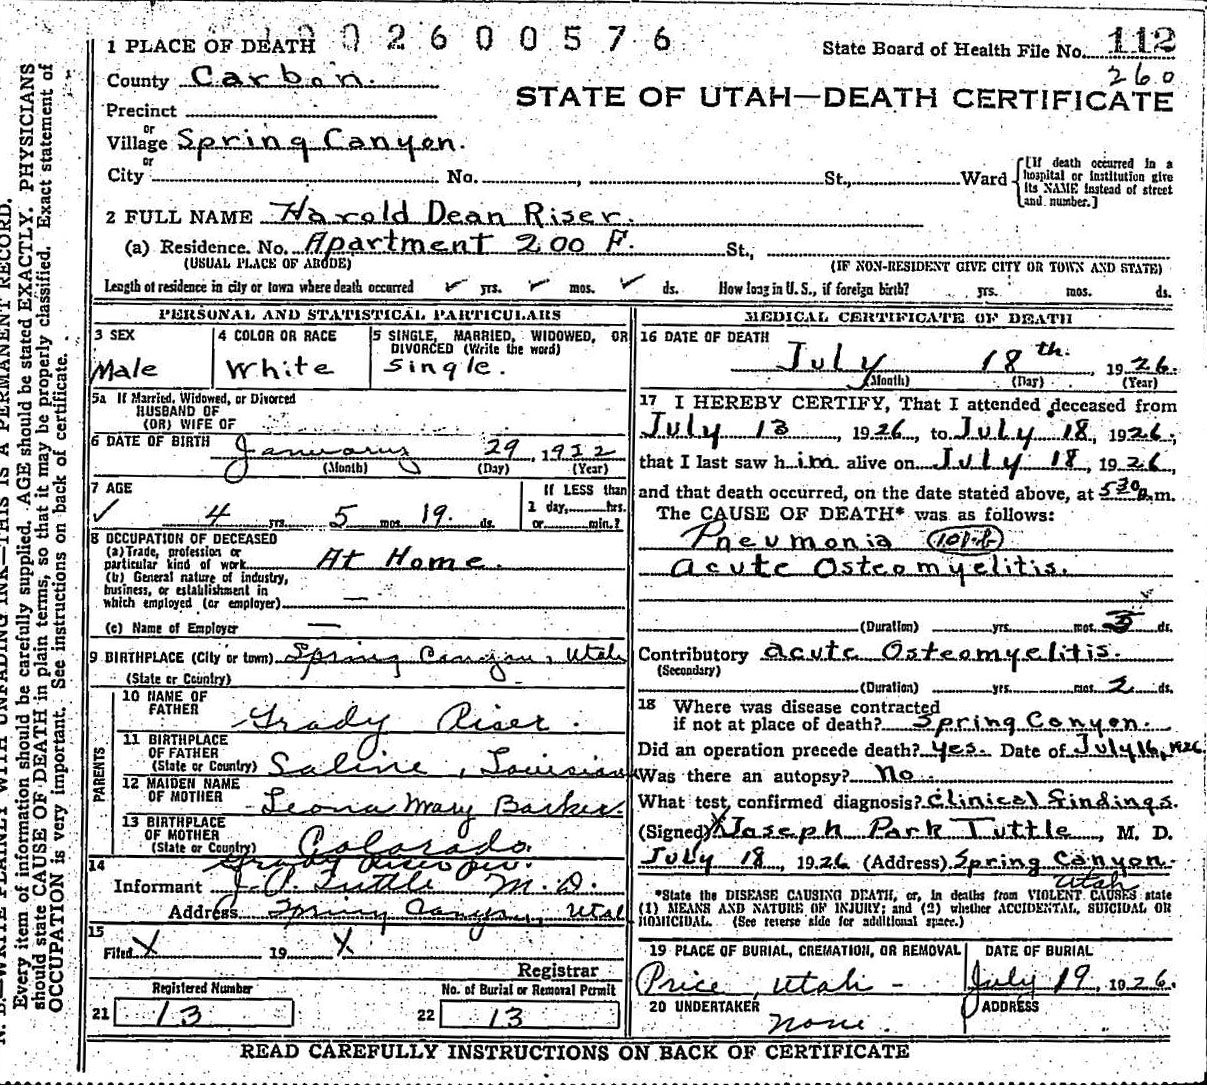 1 PLACE OF DEATH 002600576 State Board of Health File No. 112
260
County Carbon.
STATE OF UTAH—DEATH CERTIFICATE
Precinct
or
Village Spring Canyon.
or
City No. , St., Ward [If death occurred in a hospital or institution give its NAME instead of street and number.]
2 FULL NAME Harold Dean Riser.
(a) Residence. No. Apartment 200 F. St.,
(USUAL PLACE OF ABODE) (IF NON-RESIDENT GIVE CITY OR TOWN AND STATE)
Length of residence in city or town where death occurred ✓ yrs. ✓ mos. ✓ ds. How long in U. S., if foreign birth? yrs. mos. ds.
PERSONAL AND STATISTICAL PARTICULARS
3 SEX
Male
4 COLOR OR RACE
White
5 SINGLE, MARRIED, WIDOWED, OR
DIVORCED (Write the word)
Single.
5a If Married, Widowed, or Divorced
HUSBAND OF
(OR) WIFE OF
6 DATE OF BIRTH January 29, 1922
(Month) (Day) (Year)
7 AGE
✓ 4 yrs. 5 mos. 19. ds.
If LESS than
1 day, hrs.
or min.?
8 OCCUPATION OF DECEASED
(a) Trade, profession or
particular kind of work At Home.
(b) General nature of industry,
business, or establishment in
which employed (or employer) —
(c) Name of Employer —
9 BIRTHPLACE (City or town) Spring Canyon, Utah
(State or Country)
PARENTS
10 NAME OF
FATHER Grady Riser.
11 BIRTHPLACE
OF FATHER
(State or Country) Saline, Louisiana
12 MAIDEN NAME
OF MOTHER Leona Mary Barker.
13 BIRTHPLACE
OF MOTHER
(State or Country) Colorado.
14 Grady Riser per
Informant J. P. Tuttle M.D.
Address Spring Canyon, Utah
15
Filed X 19 X
Registrar
Registered Number
21 13
No. of Burial or Removal Permit
22 13
MEDICAL CERTIFICATE OF DEATH
16 DATE OF DEATH
July 18th. 1926.
(Month) (Day) (Year)
17 I HEREBY CERTIFY, That I attended deceased from
July 13, 1926, to July 18, 1926;
that I last saw him. alive on July 18, 1926,
and that death occurred, on the date stated above, at 530 m.
The CAUSE OF DEATH* was as follows:
Pneumonia
Acute Osteomyelitis.
(Duration) yrs. mos. ds.
Contributory Acute Osteomyelitis.
(Secondary)
(Duration) yrs. mos. 2 ds.
18 Where was disease contracted
if not at place of death? Spring Canyon.
Did an operation precede death? yes. Date of July 16, 1926
Was there an autopsy? No
What test confirmed diagnosis? Clinical findings.
(Signed) X Joseph Park Tuttle, M. D.
July 18, 1926 (Address) Spring Canyon.
Utah
*State the DISEASE CAUSING DEATH, or, in deaths from VIOLENT CAUSES state
(1) MEANS AND NATURE OF INJURY; and (2) whether ACCIDENTAL, SUICIDAL OR
HOMICIDAL. (See reverse side for additional space.)
19 PLACE OF BURIAL, CREMATION, OR REMOVAL
Price, Utah -
DATE OF BURIAL
July 19, 1926.
20 UNDERTAKER
none.
ADDRESS
READ CAREFULLY INSTRUCTIONS ON BACK OF CERTIFICATE
N. B.—WRITE PLAINLY WITH UNFADING INK—THIS IS A PERMANENT RECORD.
Every item of information should be carefully supplied. AGE should be stated EXACTLY. PHYSICIANS
should state CAUSE OF DEATH in plain terms, so that it may be properly classified. Exact statement of
OCCUPATION is very important. See instructions on back of certificate.